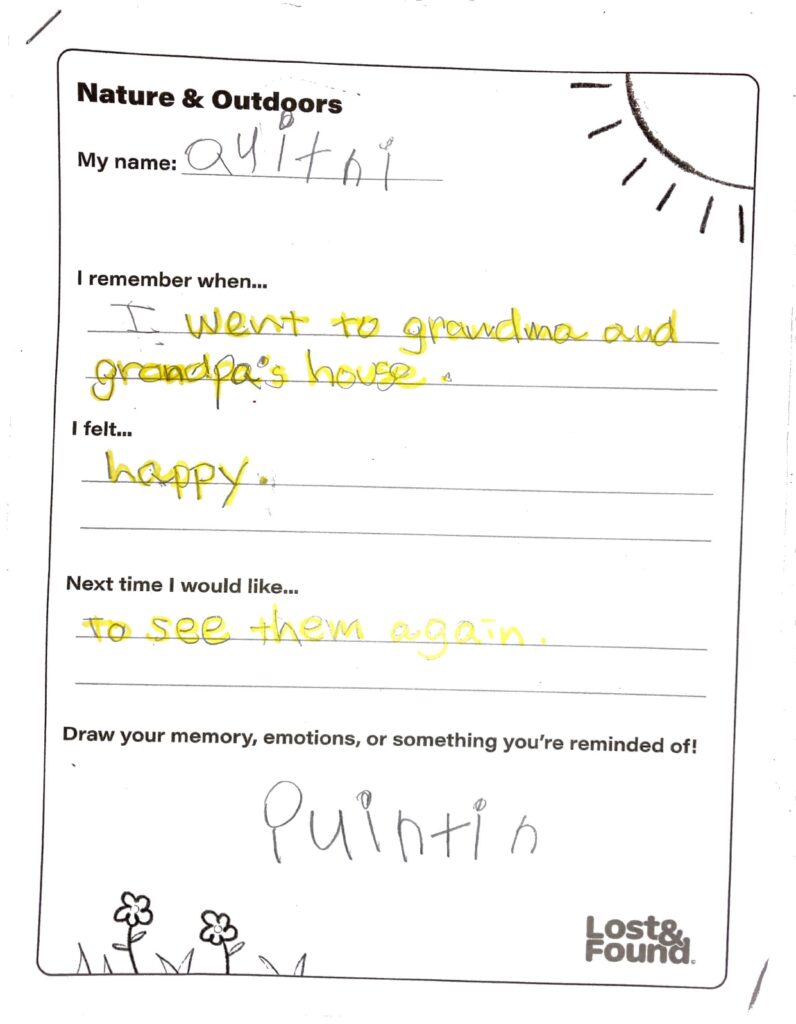 Nature & Outdoors
My name: Quitni
I remember when...
I went to grandma and
grandpa's house.
I felt...
happy.
Next time I would like...
to see them again.
Draw your memory, emotions, or something you're reminded of!
Quintin
Lost&
Found.